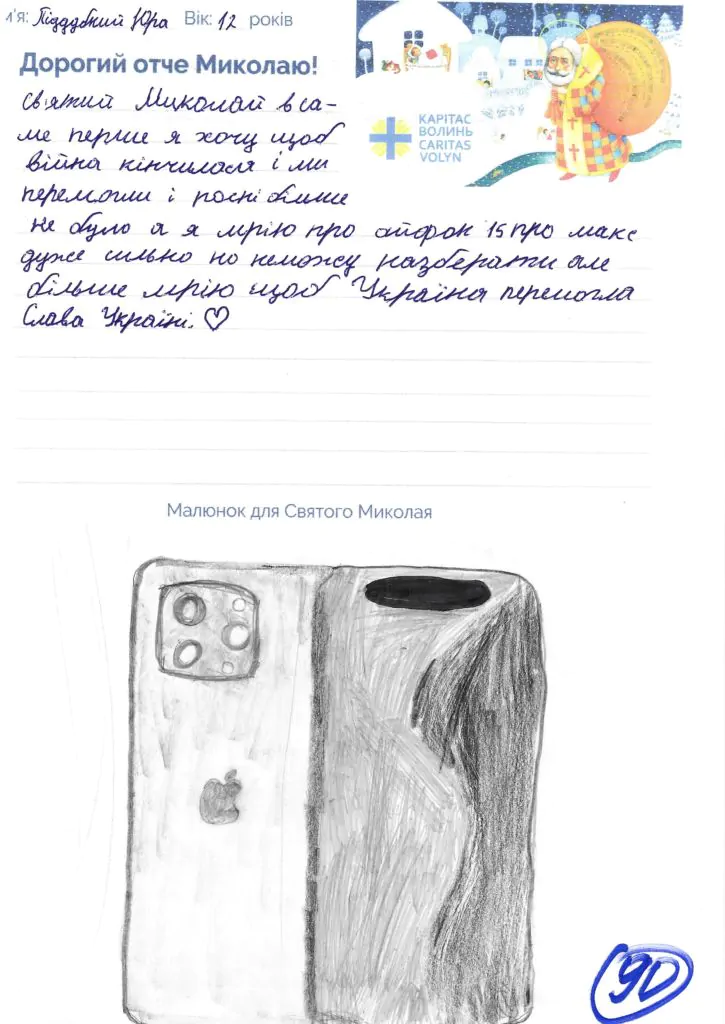 м'я: Піддубний Юра Вік: 12 років
Дорогий отче Миколаю!
святий Миколай в са-
ме перше я хочу щоб
війна кінчилася і ми
перемогли і росні більше
не було а я мрію про айфон 15 про макс
дуже сильно но неможу назберати але
більше мрію щоб Україна перемогла
Слава Україні. ♡
КАРІТАС
ВОЛИНЬ
CARITAS
VOLYN
Малюнок для Святого Миколая
90